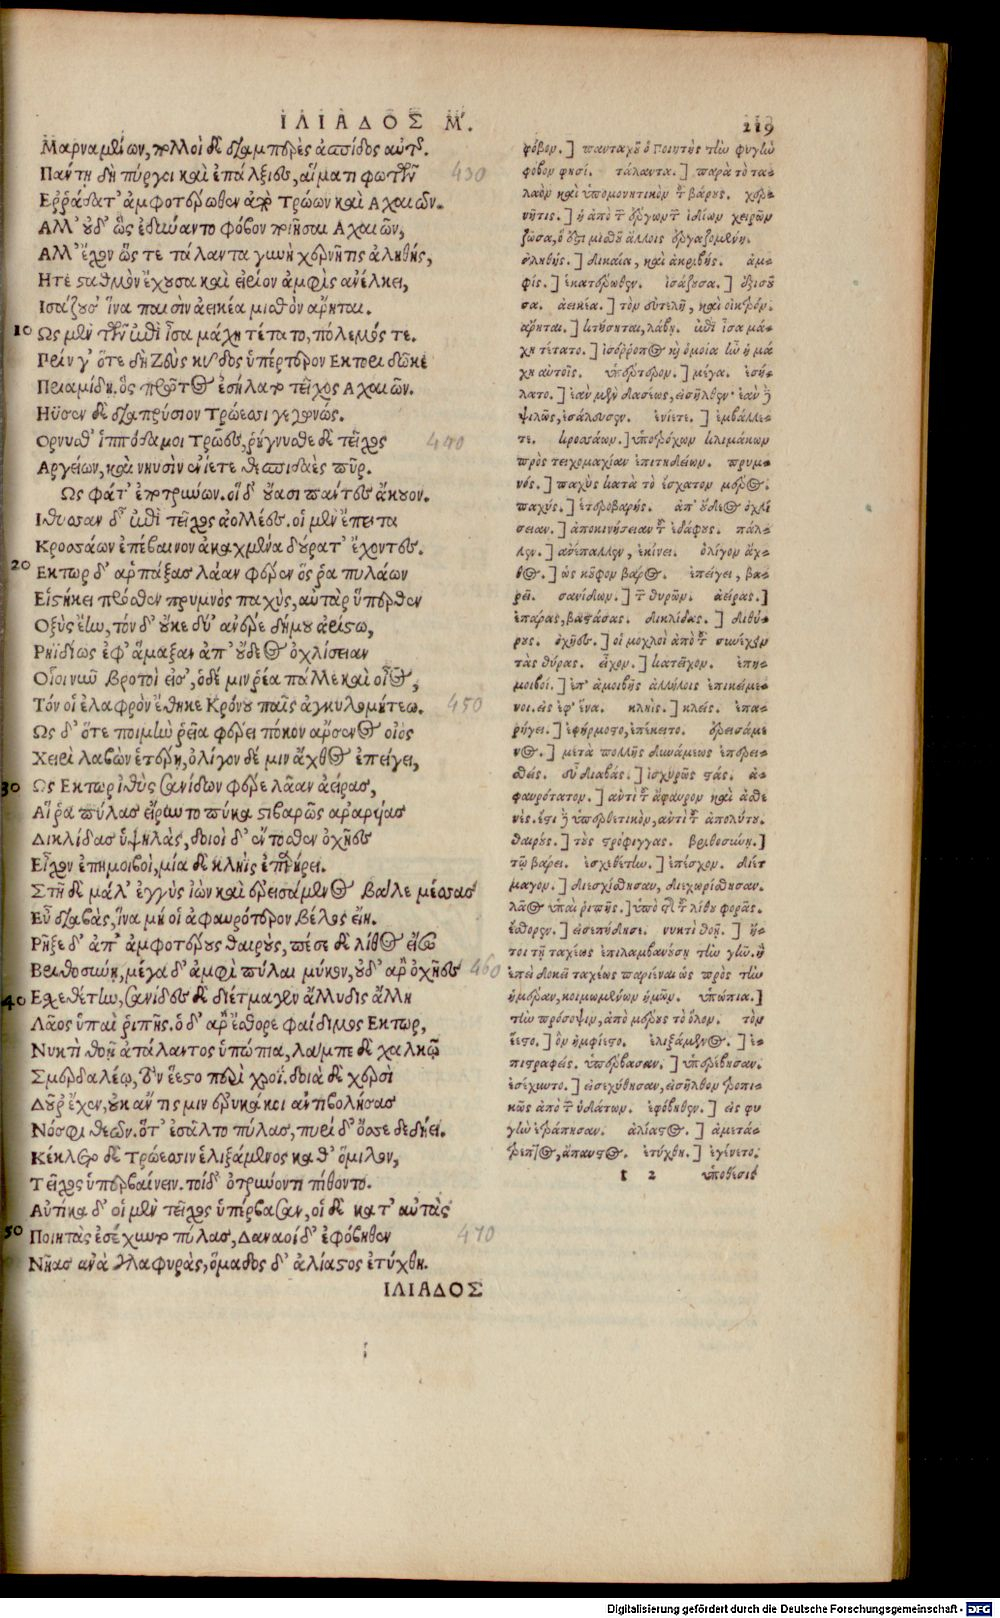 ΙΛΙΑΔΟΣ Μ.
219
Μαρναμένων, πολλοὶ δὲ διαμπερὲς ἀσπίδος αὐτῆς.
Πάντη δὴ πύργοι καὶ ἐπάλξιες, αἵματι φωτῶν 430
Ερράδατ' ἀμφοτέρωθεν ἀπὸ Τρώων καὶ Αχαιῶν.
Αλλ' οὐδ' ὣς ἐδύναντο φόβον ποιῆσαι Αχαιῶν,
Αλλ' ἔχον ὥς τε τάλαντα γυνὴ χερνῆτις ἀληθής,
Ητε σταθμὸν ἔχουσα καὶ εἰρίον ἀμφὶς ἀνέλκει,
Ισάζουσ' ἵνα παισὶν ἀεικέα μισθὸν ἄρηται.
10 Ως μὲν τῶν ἐπὶ ἶσα μάχη τέτατο, πόλεμός τε.
Πρίν γ' ὅτε δὴ Ζεὺς κῦδος ὑπέρτερον Εκτορι δῶκε
Πριαμίδη, ὃς πρῶτος ἐσήλατο τεῖχος Αχαιῶν.
Ηϋσεν δὲ διαπρύσιον Τρώεσσι γεγωνώς.
Ορνυσθ' ἱππόδαμοι Τρῶες, ῥήγνυσθε δὲ τεῖχος 440
Αργείων, καὶ νηυσὶν ἐνίετε θεσπιδαὲς πῦρ.
Ως φάτ' ἐποτρύνων. οἱ δ' οὔασι πάντες ἄκουον.
Ιθυσαν δ' ἐπὶ τεῖχος ἀολλέες. οἱ μὲν ἔπειτα
Κροσσάων ἐπέβαινον ἀκαχμένα δούρατ' ἔχοντες.
20 Εκτωρ δ' ἁρπάξας λᾶαν φέρεν ὅς ῥα πυλάων
Εἱστήκει πρόσθεν πρυμνὸς παχὺς, αὐτὰρ ὕπερθεν
Οξὺς ἔην, τόν δ' οὔκε δύ' ἀνέρε δήμου ἀρίστω,
Ρηϊδίως ἐφ' ἅμαξαν ἀπ' οὔδεος ὀχλίσειαν
Οἷοι νῦν βροτοὶ εἰσ', ὁδέ μιν ῥέα πάλλε καὶ οἶος,
Τόν οἱ ἐλαφρὸν ἔθηκε Κρόνου παῖς ἀγκυλομήτεω. 450
Ως δ' ὅτε ποιμὴν ῥεῖα φέρει πόκον ἄρσενος οἰὸς
Χειρὶ λαβὼν ἑτέρη, ὀλίγον δέ μιν ἄχθος ἐπείγει,
30 Ως Εκτωρ ἰθὺς σανίδων φέρε λᾶαν ἀείρας,
Αἵ ῥα πύλας εἴρυντο πύκα στιβαρῶς ἀραρυίας
Δικλίδας ὑψηλὰς, δοιοὶ δ' ἔντοσθεν ὀχῆες
Εἶχον ἐπημοιβοὶ, μία δὲ κληῒς ἐπῄρει.
Στῆ δὲ μάλ' ἐγγὺς ἰὼν καὶ ἐρεισάμενος βάλε μέσσας
Εὖ διαβὰς, ἵνα μή οἱ ἀφαυρότερον βέλος εἴη.
Ρῆξε δ' ἀπ' ἀμφοτέρους θαιροὺς, πέσε δὲ λίθος εἴσω
Βριθοσύνη, μέγα δ' ἀμφὶ πύλαι μύκον, οὐδ' ἄρ' ὀχῆες 460
40 Εσχεθέτην, σανίδες δὲ διέτμαγεν ἄλλυδις ἄλλη
Λᾶος ὑπαὶ ῥιπῆς. ὁ δ' ἄρ' ἔσθορε φαίδιμος Εκτωρ,
Νυκτὶ θοῇ ἀτάλαντος ὑπώπια, λάμπε δὲ χαλκῷ
Σμερδαλέῳ, τὸν ἕεστο περὶ χροΐ. δοιὰ δὲ χερσὶ
Δοῦρ' ἔχεν, οὐκ ἄν τίς μιν ἐρυκάκοι ἀντιβολήσας
Νόσφι θεῶν. ὅτ' ἐσᾶλτο πύλας, πυρὶ δ' ὄσσε δεδήει.
Κέκλετο δὲ Τρώεσσιν ἑλιξάμενος καθ' ὅμιλον,
Τεῖχος ὑπερβαίνειν. τοὶδ' ὀτρύνοντι πίθοντο.
Αὐτίκα δ' οἱ μὲν τεῖχος ὑπέρβασαν, οἱ δὲ κατ' αὐτὰς
50 Ποιητὰς ἐσέχυντο πύλας, Δαναοί δ' ἐφόβηθεν 470
Νῆας ἀνὰ γλαφυρὰς, ὅμαδος δ' ἀλίαστος ἐτύχθη.
ΙΛΙΑΔΟΣ
φόβον.] πανταχοῦ ὁ ποιητὴς τὴν φυγὴν
φόβον φησί. τάλαντα.] παρὰ τὸ τα-
λαὸν καὶ ὑπομονητικὸν τοῦ βάρους. χερ-
νῆτις.] ἡ ἀπὸ τῶν ἔργων τῶν ἰδίων χειρῶν
ζῶσα, ὅ ἐστι μισθοῦ ἄλλοις ἐργαζομένη.
ἀληθής.] δικαία, καὶ ἀκριβής. ἀμ-
φίς.] ἑκατέρωθεν. ἰσάζουσα.] ἐξισοῦ
σα. ἀεικέα.] τὸν εὐτελῆ, καὶ οἰκτρόν.
ἄρηται.] κτήσηται, λάβη. ἐπὶ ἶσα μά-
χη τέτατο.] ἰσόρροπος καὶ ὁμοία ἦν ἡ μά
χη αὐτοῖς. ὑπέρτερον.] μέγα. ἐσή-
λατο.] ἐὰν μὲν δασέως, εἰσῆλθεν· ἐὰν δὲ
ψιλῶς, ἐσάλευσεν. ἐνίετε.] ἐμβάλλε-
τε. κροσσάων.] ὑποτρόχων κλιμάκων
πρὸς τειχομαχίαν ἐπιτηδείων. πρυμ-
νός.] παχὺς κατὰ τὸ ἔσχατον μέρος.
παχύς.] ἑτεροβαρής. ἀπ' οὔδεος ὀχλί
σειαν.] ἀποκινήσειαν τοῦ ἐδάφους. πάλ-
λεν.] ἀνέπαλλεν, ἐκίνει. ὀλίγον ἄχ-
θος.] ὡς κοῦφον βάρος. ἐπείγει, βα-
ρεῖ. σανίδων.] τῶν θυρῶν. ἀείρας.]
ἐπάρας, βαστάσας. δικλίδας.] διθύ-
ρους. ὀχῆες.] οἱ μοχλοὶ ἀπὸ τοῦ συνέχειν
τὰς θύρας. εἶχον.] κατεῖχον. ἐπη-
μοιβοί.] ἐπ' ἀμοιβῆς ἀλλήλοις ἐπικείμε-
νοι. εἰς ἐφ' ἕνα. κληΐς.] κλείς. ἐπα-
ρήγει.] ἐφήρμοστο, ἐπέκειτο. ἐρεισάμε
νος.] μετὰ πολλῆς δυνάμεως ἐπερει-
σθείς. εὖ διαβάς.] ἰσχυρῶς στάς. ἀ-
φαυρότατον.] ἀντὶ τοῦ ἄφαυρον καὶ ἀσθε
νές. ἔστι δὲ ὑπερθετικὸν, ἀντὶ τοῦ ἀπολύτου.
θαιρούς.] τοὺς στρόφιγγας. βριθοσύνη.]
τῷ βάρει. ἐσχεθέτην.] ἐπέσχον. διέτ
μαγον.] διεσχίσθησαν, διεχωρίσθησαν.
λᾶος ὑπαὶ ῥιπῆς.] ὑπὸ τῆς τοῦ λίθου φορᾶς.
ἔσθορεν.] εἰσεπήδησε. νυκτὶ θοῇ.] ἤ-
τοι τῇ ταχέως ἐπιλαμβανούσῃ τὴν γῆν. ἢ
ἐπεὶ δοκεῖ ταχέως παριέναι ὡς πρὸς τὴν
ἡμέραν, κοιμωμένων ἡμῶν. ὑπώπια.]
τὴν πρόσοψιν, ἀπὸ μέρους τὸ ὅλον. τὸν
ἕεστο.] ὃν ἠμφίεστο. ἑλιξάμενος.] ἐ-
πιστραφείς. ὑπέρβασαν.] ὑπερέβησαν.
ἐσέχυντο.] εἰσεχύθησαν, εἰσῆλθον τροπι-
κῶς ἀπὸ τῶν ὑδάτων. ἐφόβηθεν.] εἰς φυ
γὴν ἐτράπησαν. ἀλίαστος.] ἀμετά-
τρεπτος, ἄπαυστος. ἐτύχθη.] ἐγένετο.
t 2 ὑπόθεσις
Digitalisierung gefördert durch die Deutsche Forschungsgemeinschaft - DFG